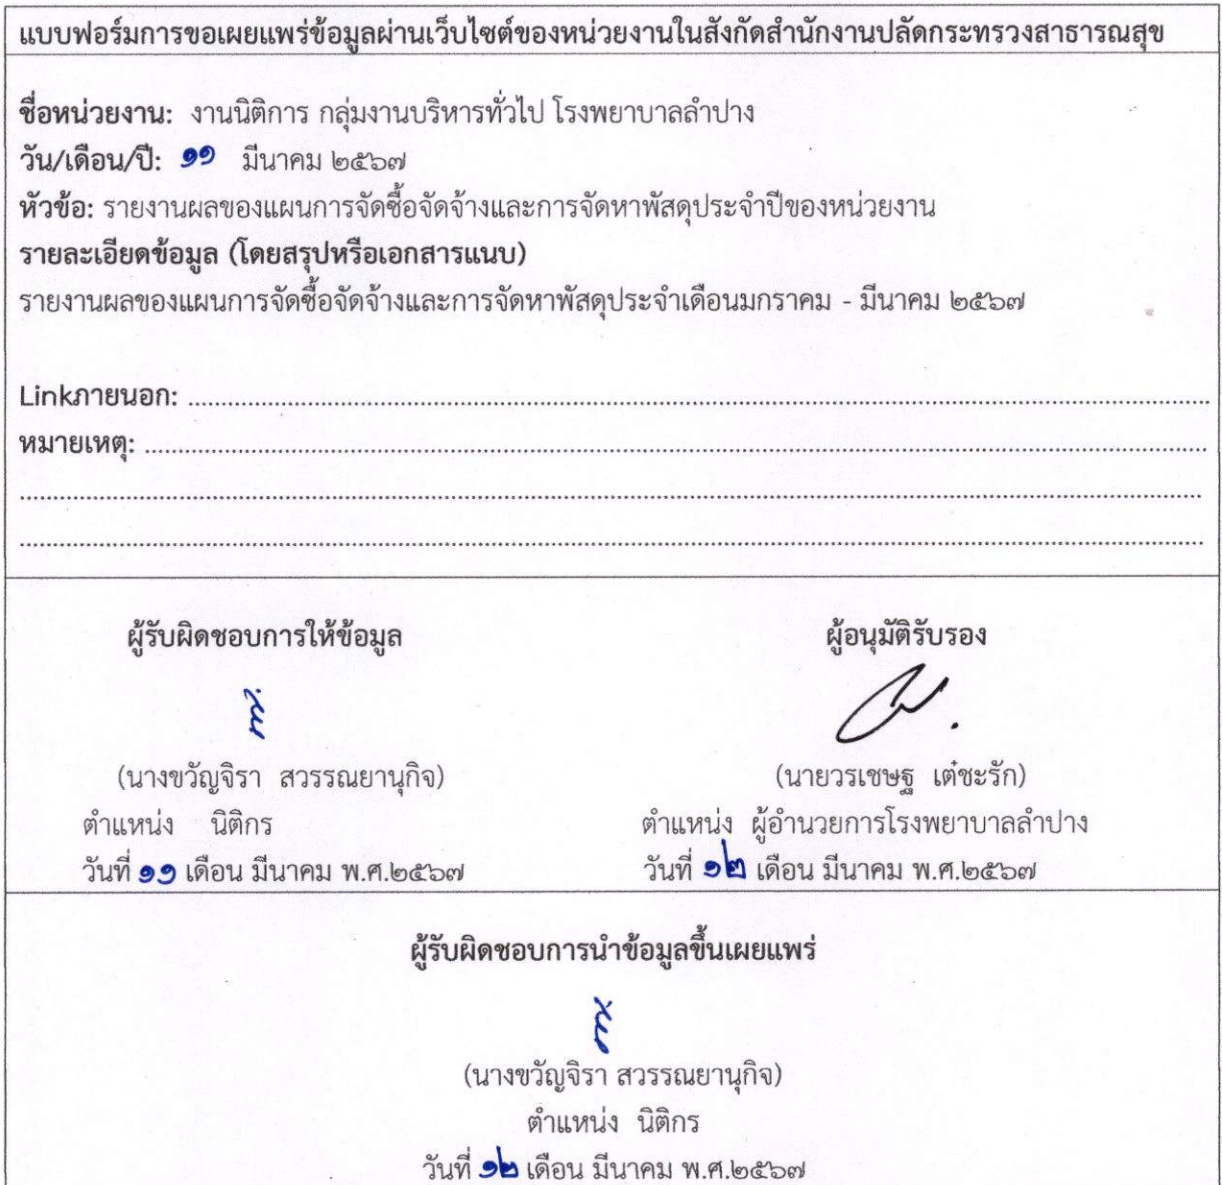 แบบฟอร์มการขอเผยแพร่ข้อมูลผ่านเว็บไซต์ของหน่วยงานในสังกัดสำนักงานปลัดกระทรวงสาธารณสุข
ชื่อหน่วยงาน: งานนิติการ กลุ่มงานบริหารทั่วไป โรงพยาบาลลำปาง
วัน/เดือน/ปี: ๑๑ มีนาคม ๒๕๖๗
หัวข้อ: รายงานผลของแผนการจัดซื้อจัดจ้างและการจัดหาพัสดุประจำปีของหน่วยงาน
รายละเอียดข้อมูล (โดยสรุปหรือเอกสารแนบ)
รายงานผลของแผนการจัดซื้อจัดจ้างและการจัดหาพัสดุประจำเดือนมกราคม - มีนาคม ๒๕๖๗
Linkภายนอก:
หมายเหตุ:
ผู้รับผิดชอบการให้ข้อมูล
(นางขวัญจิรา สวรรณยานุกิจ)
ตำแหน่ง นิติกร
วันที่ ๑๑ เดือน มีนาคม พ.ศ.๒๕๖๗
ผู้อนุมัติรับรอง
(นายวรเชษฐ เต๋ชะรัก)
ตำแหน่ง ผู้อำนวยการโรงพยาบาลลำปาง
วันที่ ๑๒ เดือน มีนาคม พ.ศ.๒๕๖๗
ผู้รับผิดชอบการนำข้อมูลขึ้นเผยแพร่
(นางขวัญจิรา สวรรณยานุกิจ)
ตำแหน่ง นิติกร
วันที่ ๑๒ เดือน มีนาคม พ.ศ.๒๕๖๗